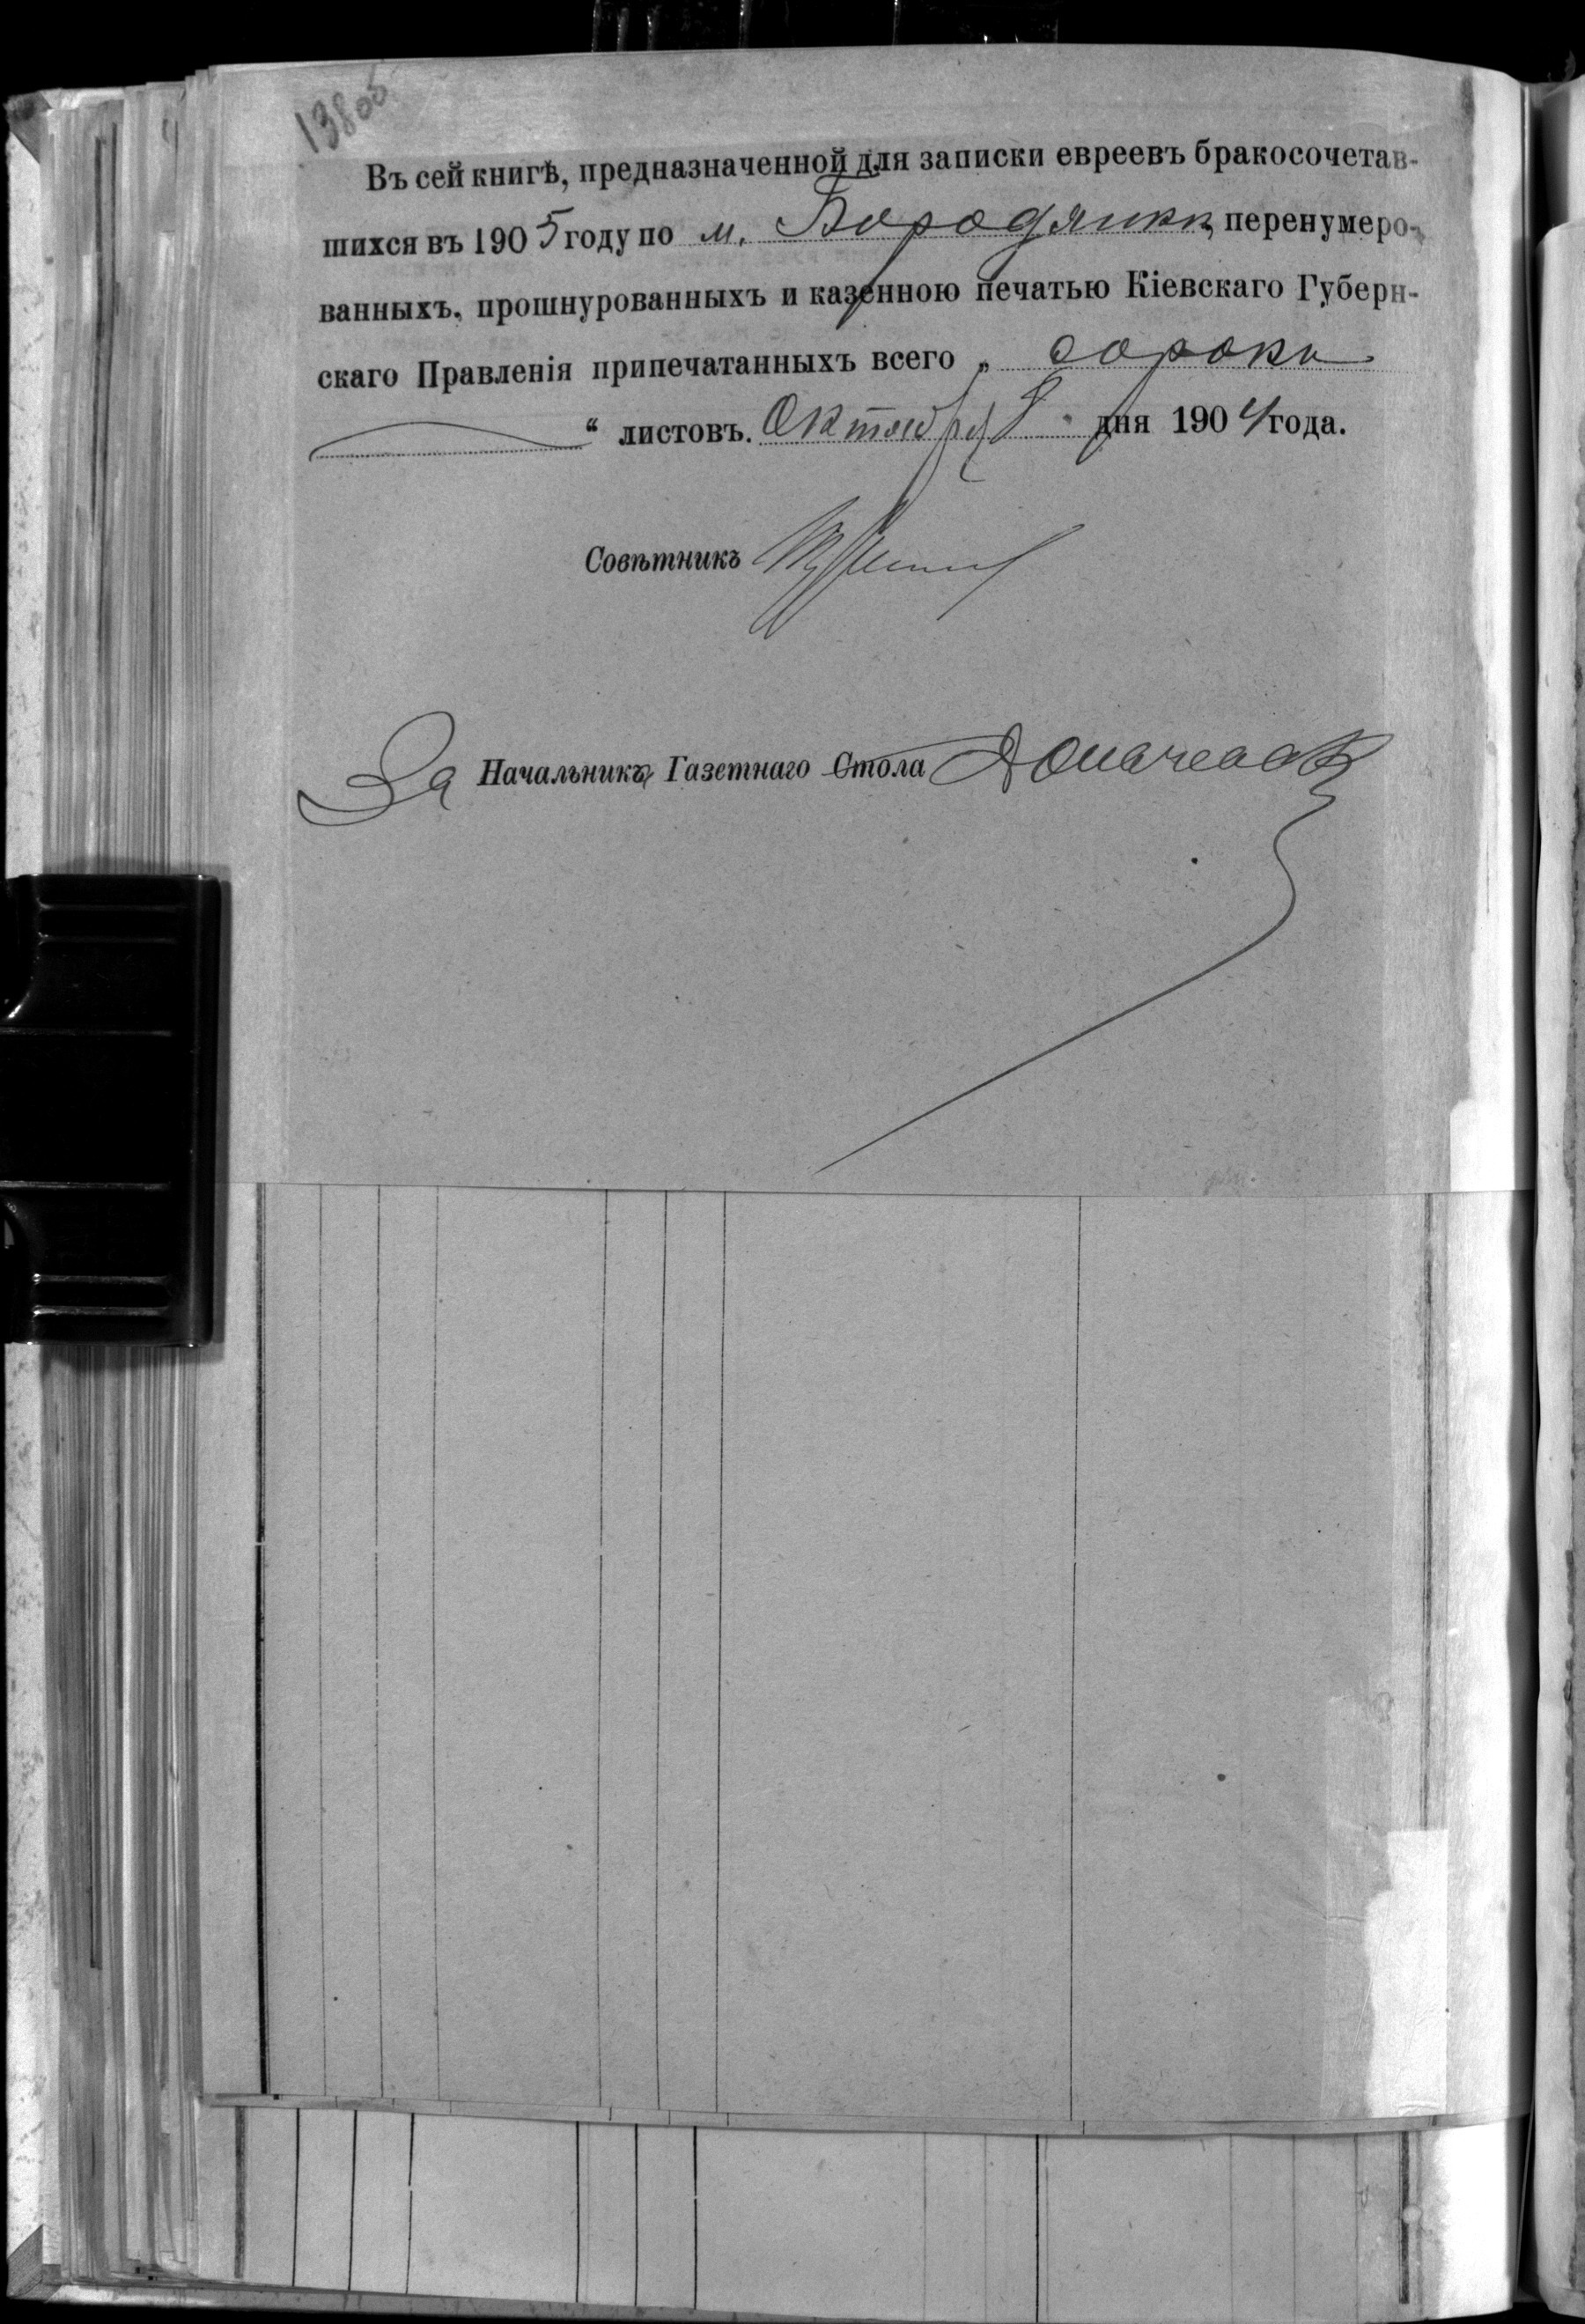 13805
Въ сей книгѣ, предназначенной для записки евреевъ бракосочетав-
шихся въ 1905 году по м. Бородянкѣ, перенумеро-
ванныхъ, прошнурованныхъ и казенною печатью Кіевскаго Губерн-
скаго Правленія припечатанныхъ всего „ сорокъ
“ листовъ. Октября 8 дня 1904 года.
Совѣтникъ
За Начальника Газетнаго Стола